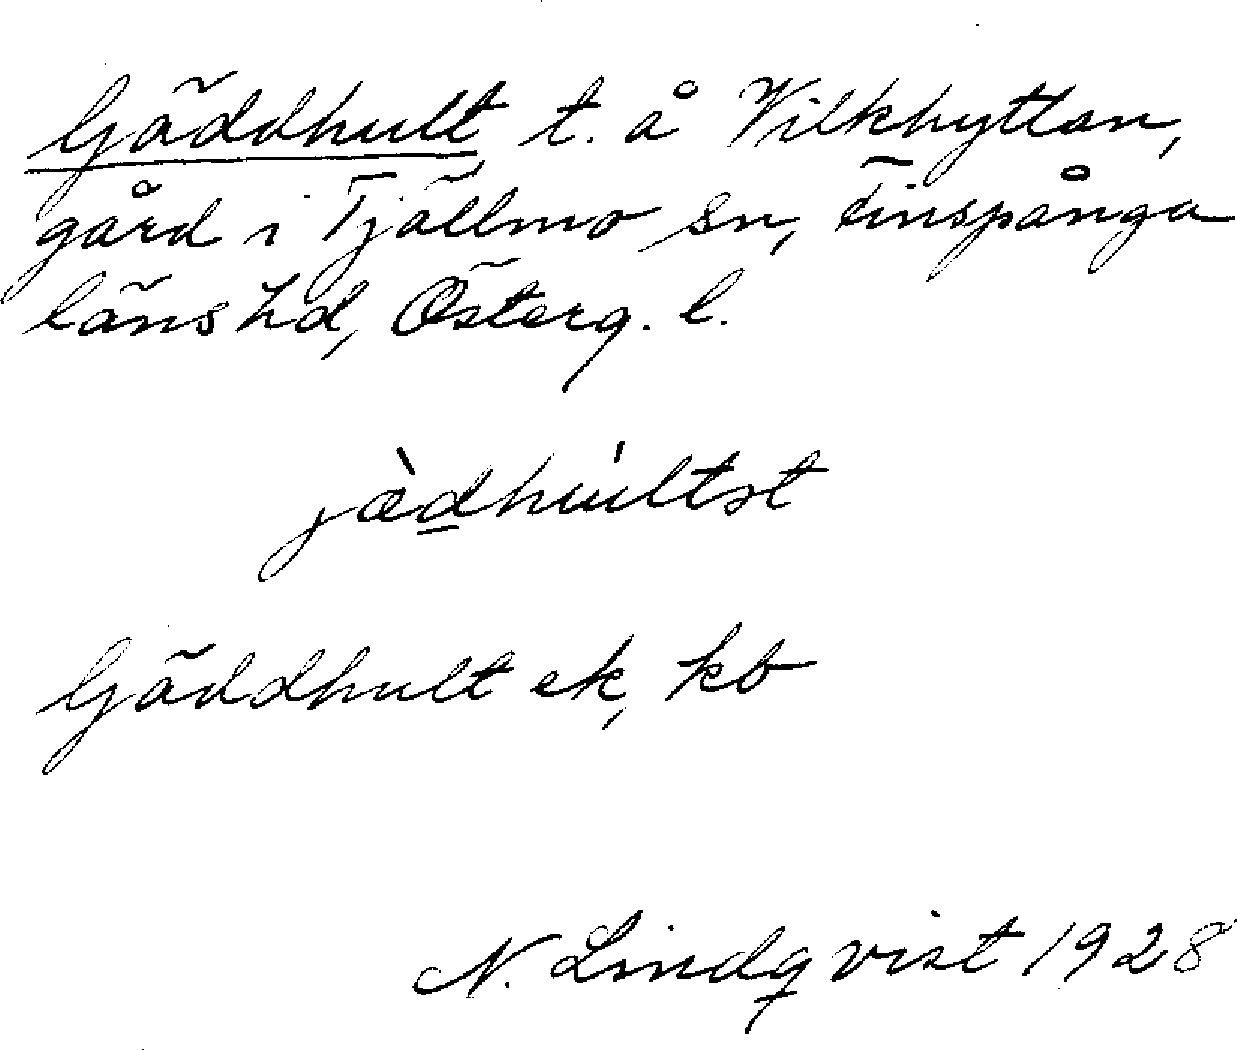 Gäddhult, t. å Vilkhyttan,
gård i Tjällmo sn, Finspånga
läns hd, Österg. l.
jæ̀dhúltst
Gäddhult ek, kb
N. Lindqvist 1928